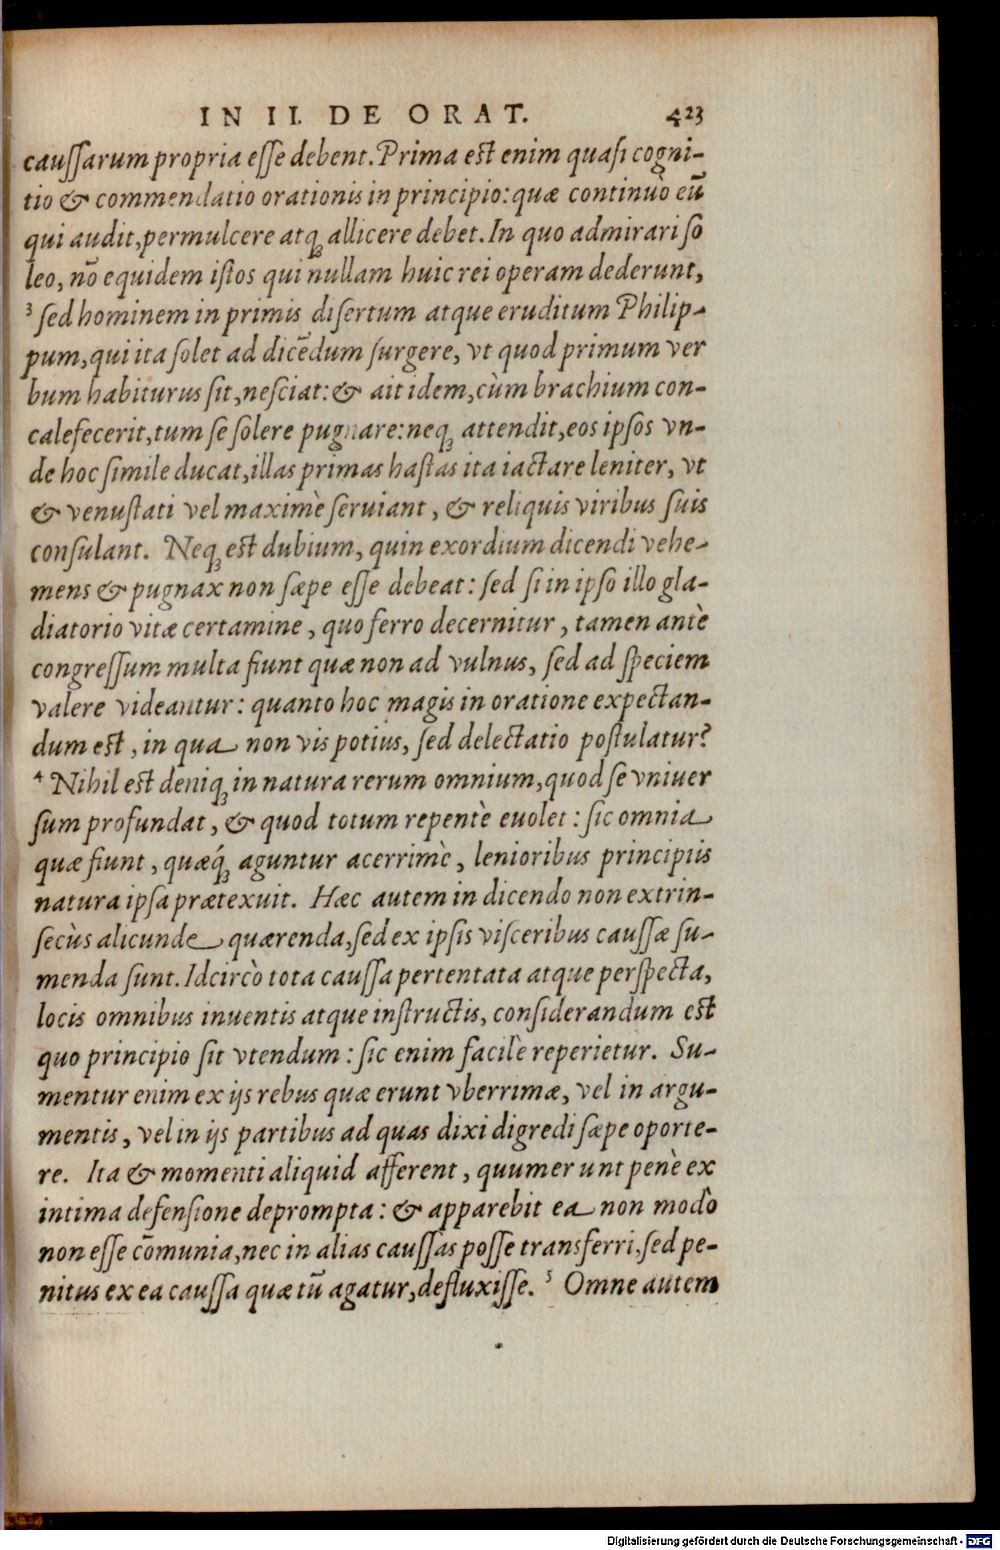 IN II. DE ORAT. 423
cauſſarum propria eſſe debent. Prima est enim quaſi cogni-
tio & commendatio orationis in principio: quæ continuò eū
qui audit, permulcere atq; allicere debet. In quo admirari ſo
leo, nō equidem iſtos qui nullam huic rei operam dederunt,
³ ſed hominem in primis diſertum atque eruditum Philip-
pum, qui ita ſolet ad dicēdum ſurgere, vt quod primum ver
bum habiturus ſit, neſciat: & ait idem, cùm brachium con-
calefecerit, tum ſe ſolere pugnare: neq; attendit, eos ipſos vn-
de hoc ſimile ducat, illas primas haſtas ita iactare leniter, vt
& venuſtati vel maximè ſeruiant, & reliquis viribus ſuis
conſulant. Neq; est dubium, quin exordium dicendi vehe-
mens & pugnax non ſæpe eſſe debeat: ſed ſi in ipſo illo gla-
diatorio vitæ certamine, quo ferro decernitur, tamen antè
congreſſum multa fiunt quæ non ad vulnus, ſed ad ſpeciem
valere videantur: quanto hoc magis in oratione expectan-
dum est, in qua non vis potius, ſed delectatio poſtulatur?
⁴ Nihil est deniq; in natura rerum omnium, quod ſe vniuer
ſum profundat, & quod totum repentè euolet: ſic omnia
quæ fiunt, quæq́; aguntur acerrimè, lenioribus principiis
natura ipſa prætexuit. Hæc autem in dicendo non extrin-
ſecùs alicunde quærenda, ſed ex ipſis viſceribus cauſſæ ſu-
menda ſunt. Idcircò tota cauſſa pertentata atque perſpecta,
locis omnibus inuentis atque inſtructis, conſiderandum est
quo principio ſit vtendum: ſic enim facilè reperietur. Su-
mentur enim ex ijs rebus quæ erunt vberrimæ, vel in argu-
mentis, vel in ijs partibus ad quas dixi digredi ſæpe oporte-
re. Ita & momenti aliquid afferent, quum erunt penè ex
intima defenſione deprompta: & apparebit ea non modò
non eſſe cōmunia, nec in alias cauſſas poſſe transferri, ſed pe-
nitus ex ea cauſſa quæ tū agatur, defluxiſſe. ⁵ Omne autem
Digitalisierung gefördert durch die Deutsche Forschungsgemeinschaft - DFG